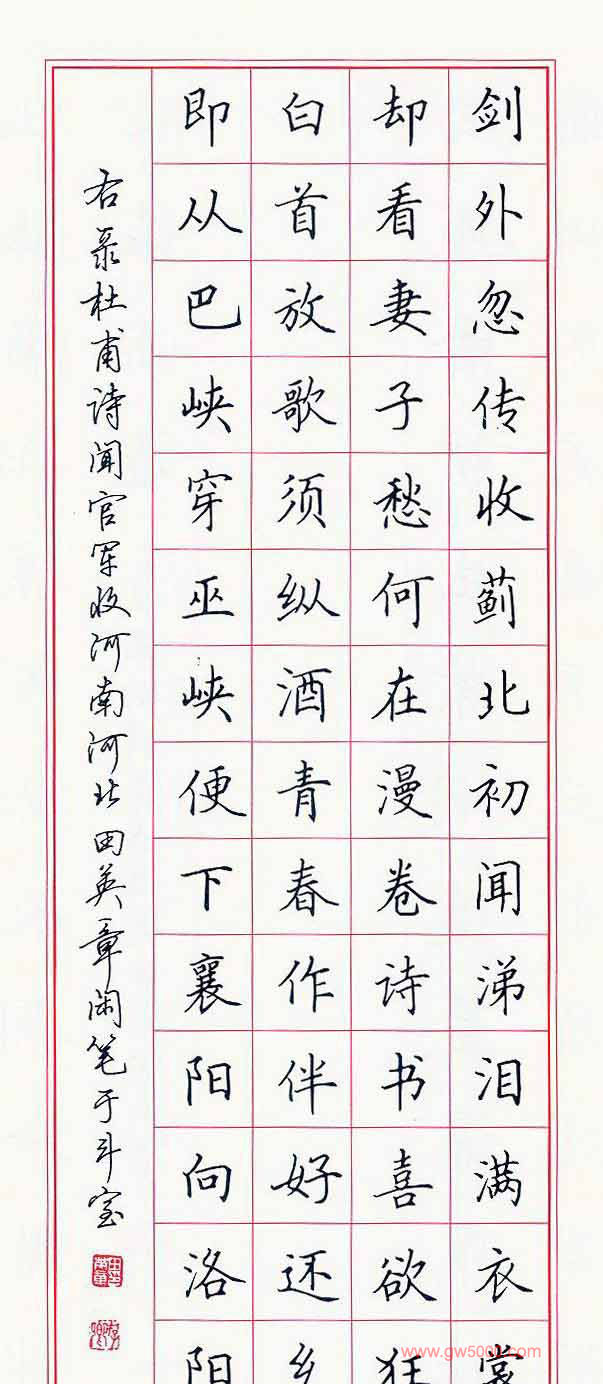 剑外忽传收蓟北初闻涕泪满衣裳
却看妻子愁何在漫卷诗书喜欲狂
白首放歌须纵酒青春作伴好还乡
即从巴峡穿巫峡便下襄阳向洛阳
右录杜甫诗闻官军收河南河北田英章闲笔于斗室
www.gw5000.com